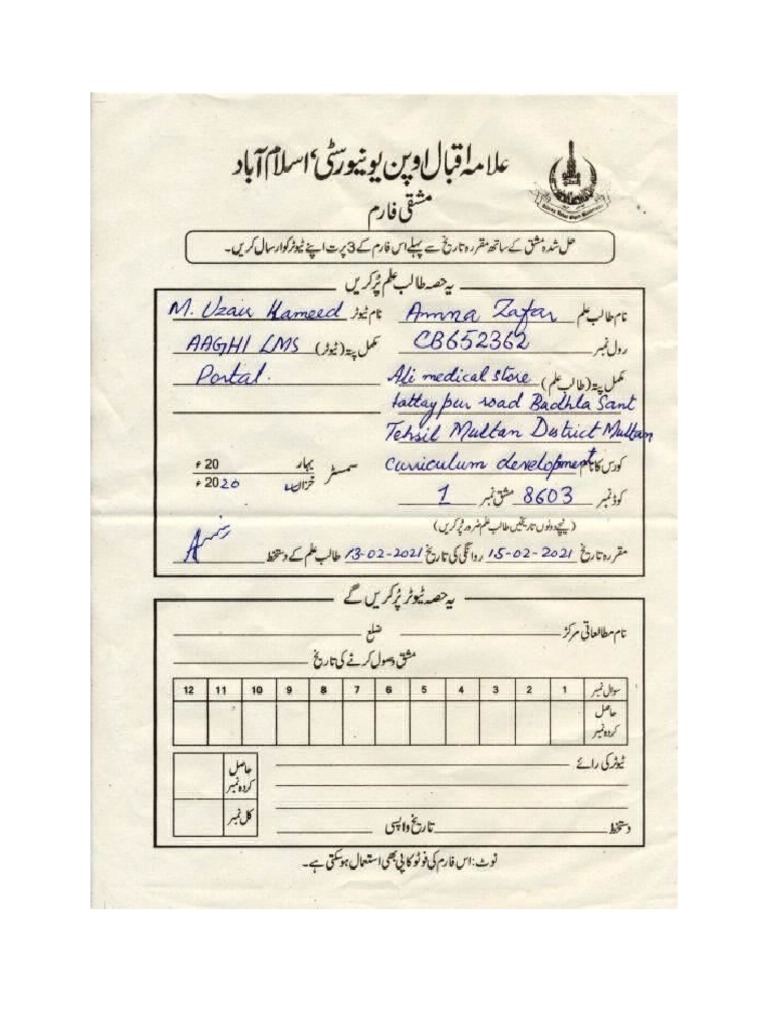 علامہ اقبال اوپن یونیورسٹی، اسلام آباد
مشقی فارم
حل شدہ مشق کے ساتھ مقررہ تاریخ سے پہلے اس فارم کے 3 پرت اپنے ٹیوٹر کو ارسال کریں۔
یہ حصہ طالب علم پُر کریں
نام طالب علم Amna Zafar نام ٹیوٹر M. Uzair Hameed
رول نمبر CB652362 مکمل پتہ (ٹیوٹر) AAGHI LMS
مکمل پتہ (طالب علم) Ali medical store Portal.
tattay pur road Badhla Sant
Tehsil Multan District Multan
کورس کا نام curriculum development سمسٹر بہار 20ء
کوڈ نمبر 8603 مشق نمبر 1 خزاں 2020ء
(نیچے دونوں تاریخیں طالب علم ضرور پُر کریں)
مقررہ تاریخ 15-02-2021 روانگی کی تاریخ 13-02-2021 طالب علم کے دستخط
یہ حصہ ٹیوٹر پُر کریں گے
نام مطالعاتی مرکز ضلع
مشق وصول کرنے کی تاریخ
سوال نمبر 1 2 3 4 5 6 7 8 9 10 11 12
حاصل کردہ نمبر
ٹیوٹر کی رائے حاصل کردہ نمبر
کل نمبر
دستخط تاریخ واپسی
نوٹ: اس فارم کی فوٹو کاپی بھی استعمال ہو سکتی ہے۔